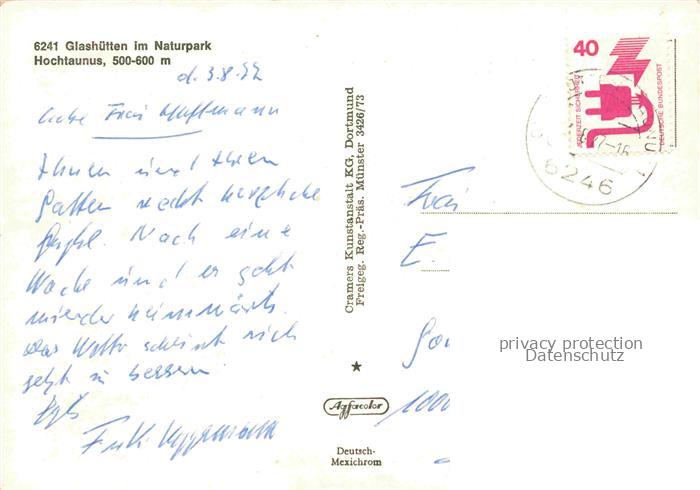 6241 Glashütten im Naturpark
Hochtaunus, 500-600 m
d. 3.8.77
Liebe Frau
Ihnen und Ihren
Gatten recht herzliche
Grüße. Noch eine
Woche und es geht
wieder heimwärts.
Das Wetter scheint sich
jetzt zu bessern
Cramers Kunstanstalt KG, Dortmund
Freigeg. Reg.-Präs. Münster 3426/73
Agfacolor
Deutsch-
Mexichrom
40
JEDERZEIT SICHERHEIT
DEUTSCHE BUNDESPOST
6246
Frau
E.
privacy protection
Datenschutz